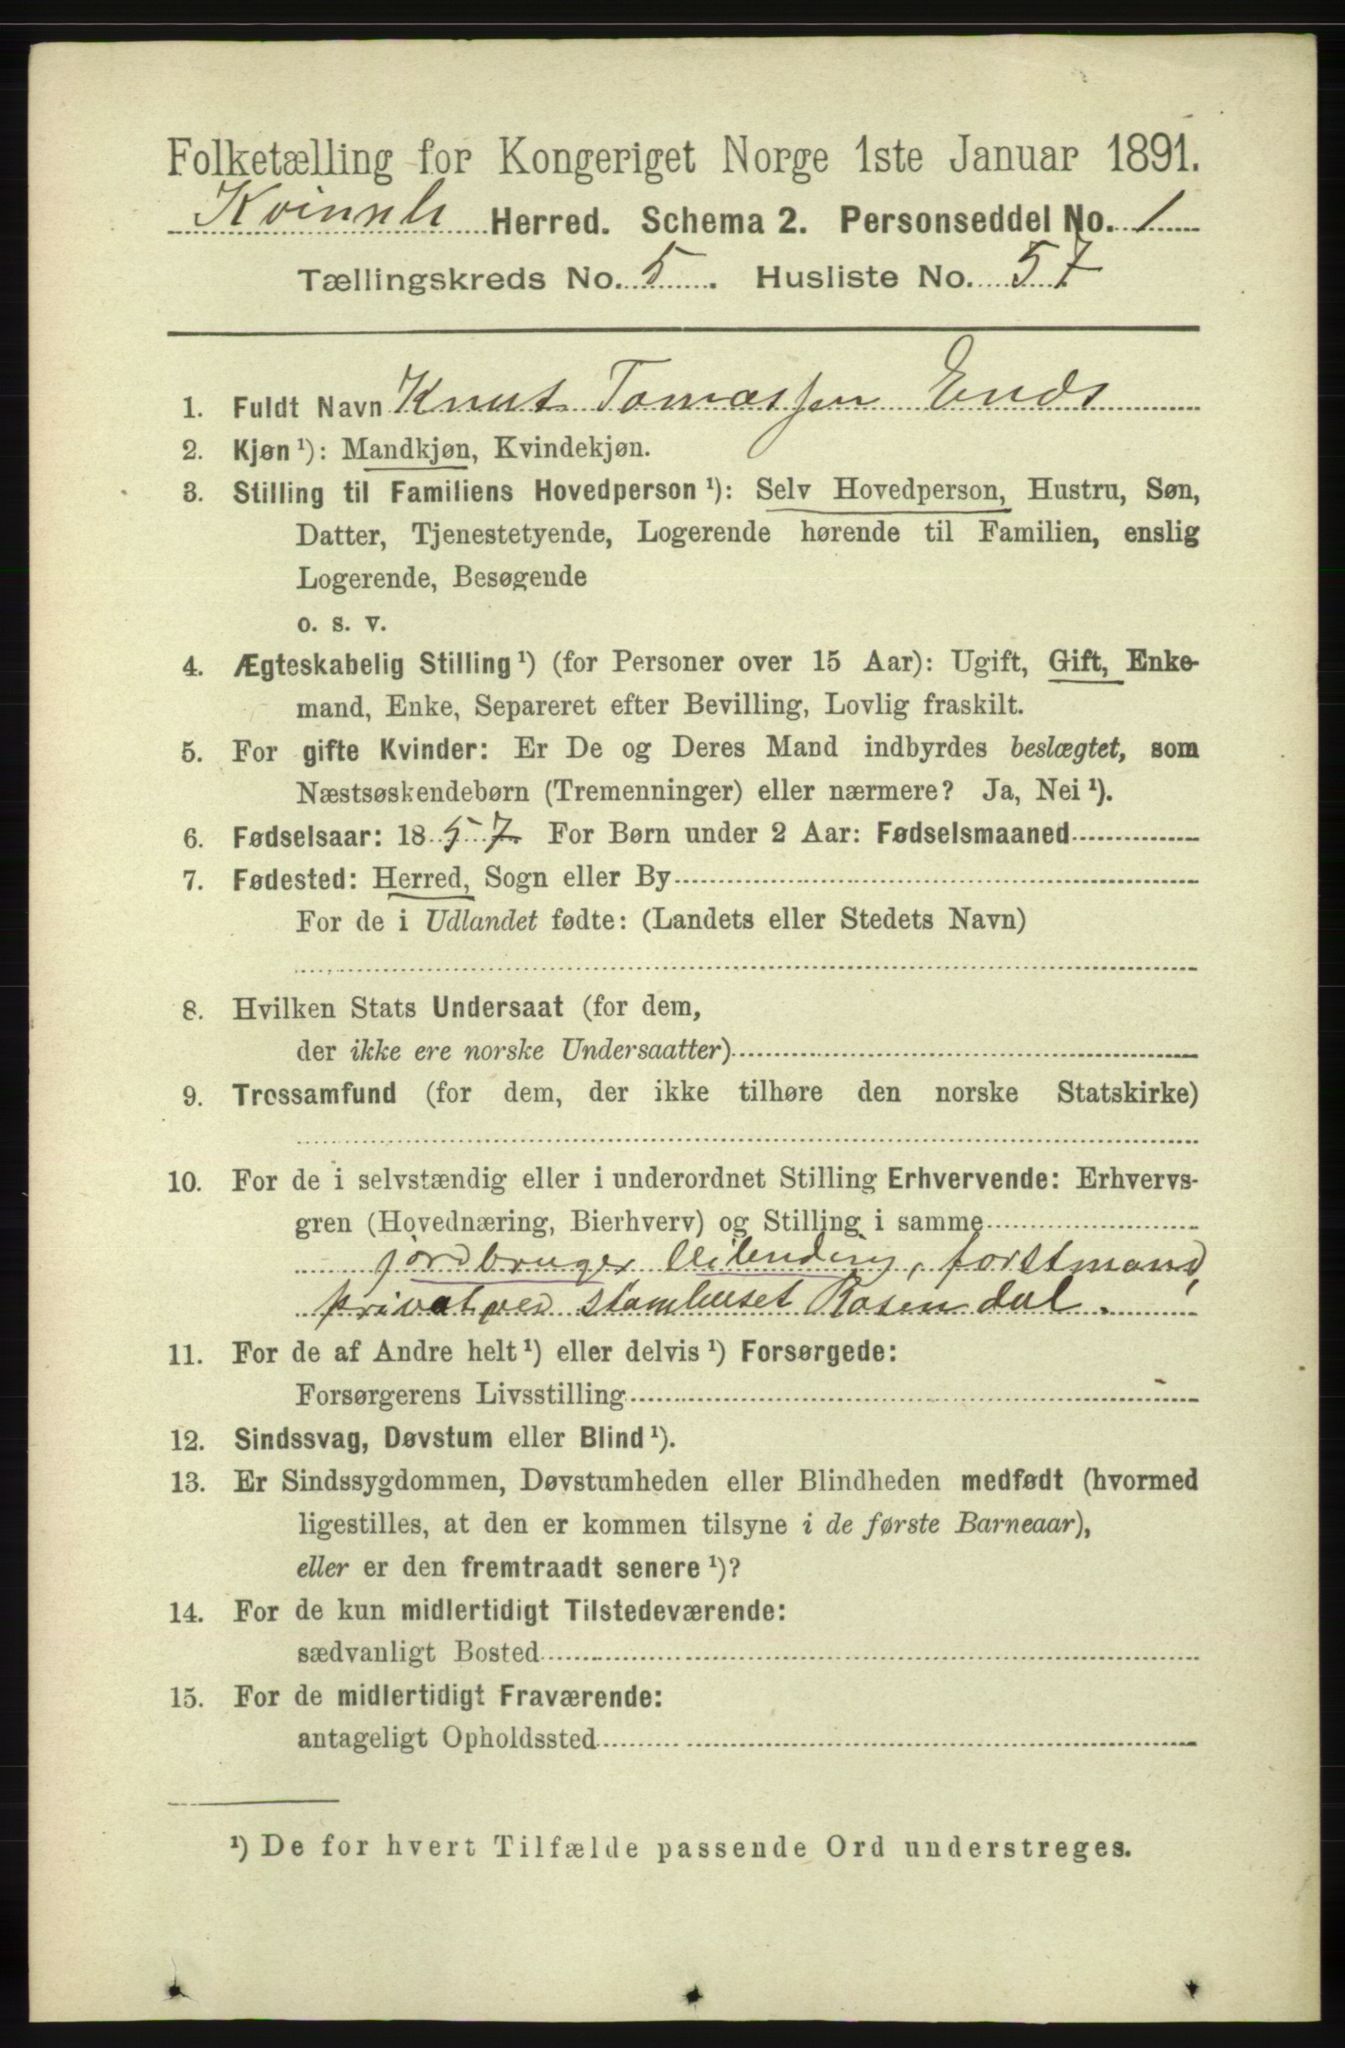 Folketælling for Kongeriget Norge 1ste Januar 1891.
Kvinnh. Herred. Schema 2. Personseddel No. 1
Tællingskreds No. 5. Husliste No. 57
1. Fuldt Navn Knut Tomassen Enes
2. Kjøn¹): Mandkjøn, Kvindekjøn.
3. Stilling til Familiens Hovedperson¹): Selv Hovedperson, Hustru, Søn,
Datter, Tjenestetyende, Logerende hørende til Familien, enslig
Logerende, Besøgende
o. s. v.
4. Ægteskabelig Stilling¹) (for Personer over 15 Aar): Ugift, Gift, Enke-
mand, Enke, Separeret efter Bevilling, Lovlig fraskilt.
5. For gifte Kvinder: Er De og Deres Mand indbyrdes beslægtet, som
Næstsøskendebørn (Tremenninger) eller nærmere? Ja, Nei¹).
6. Fødselsaar: 1857. For Børn under 2 Aar: Fødselsmaaned
7. Fødested: Herred, Sogn eller By
For de i Udlandet fødte: (Landets eller Stedets Navn)
8. Hvilken Stats Undersaat (for dem,
der ikke ere norske Undersaatter)
9. Trossamfund (for dem, der ikke tilhøre den norske Statskirke)
10. For de i selvstændig eller i underordnet Stilling Erhvervende: Erhvervs-
gren (Hovednæring, Bierhverv) og Stilling i samme
jordbruger leilending, forstmand
privat ved stamhuset Rosendal.
11. For de af Andre helt¹) eller delvis¹) Forsørgede:
Forsørgerens Livsstilling
12. Sindssvag, Døvstum eller Blind¹).
13. Er Sindssygdommen, Døvstumheden eller Blindheden medfødt (hvormed
ligestilles, at den er kommen tilsyne i de første Barneaar),
eller er den fremtraadt senere¹)?
14. For de kun midlertidigt Tilstedeværende:
sædvanligt Bosted
15. For de midlertidigt Fraværende:
antageligt Opholdssted
¹) De for hvert Tilfælde passende Ord understreges.